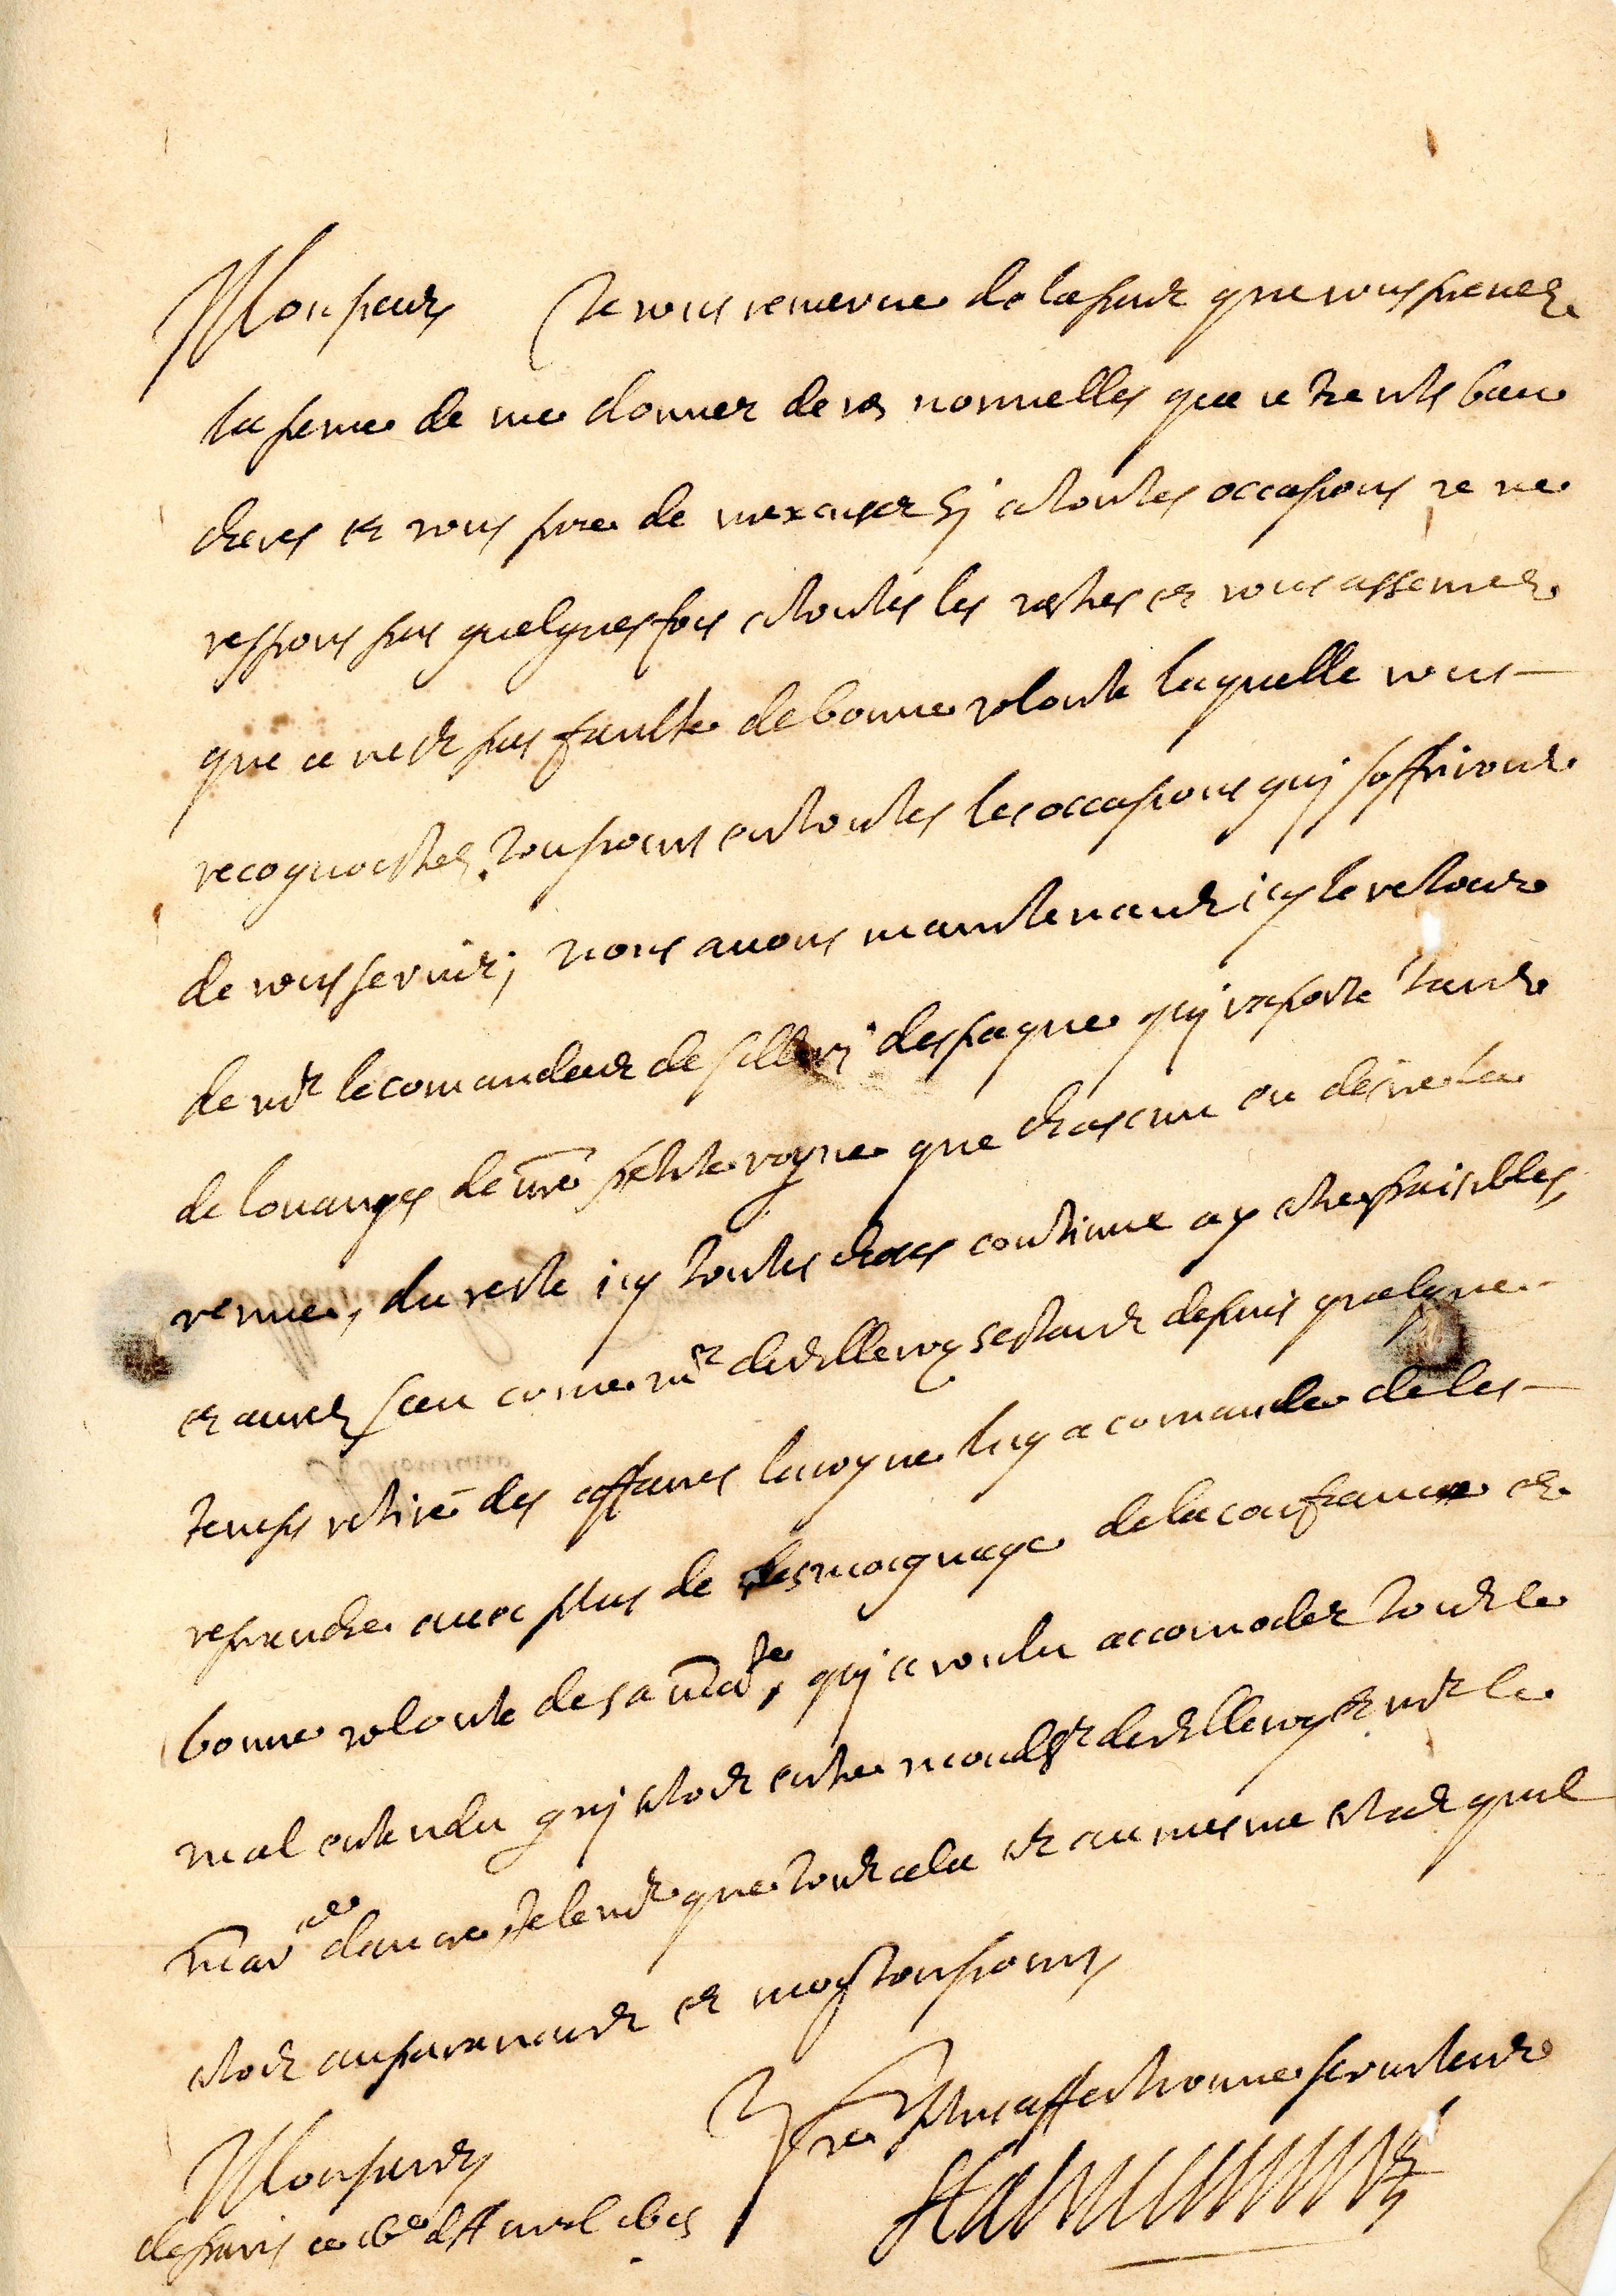 Monsieur Je vous remercie de la part que vous prenez
la peine de me donner de vos nouvelles que je tiens bien
cheres et vous prie de mexcuser sj a toutes occasions je ne
respons pas quelquesfois a toutes les vostres et vous asseurer
que ce nest pas faulte de bonne volonte laquelle vous
recognoistrez tousjours en toutes les occasions quj soffriront
de vous servir; nous avons maintenant icy le retour
de mr le comandeur de sillerj despagne quj raporte tant
de louanges de nre petite royne que chascun en desire la
venue, du reste icy toutes choses continue a y estre paisibles,
et aurez sceu come mr de villeroy sestant depuis quelque
temps retiré des affaires la royne luy a comande de les
reprendre avec plus de tesmoignage de la confiance et
bonne volonte de sa mate, quj a voulu accomoder tout le
mal entendu quj estoit entre monsr de villeroy et mr le
maral dancre, tellemt que tout cela est au mesme estat quil
estoit auparavant et moy tousjours
Monsieur
Vre plus affectionne serviteur
de Paris ce davril